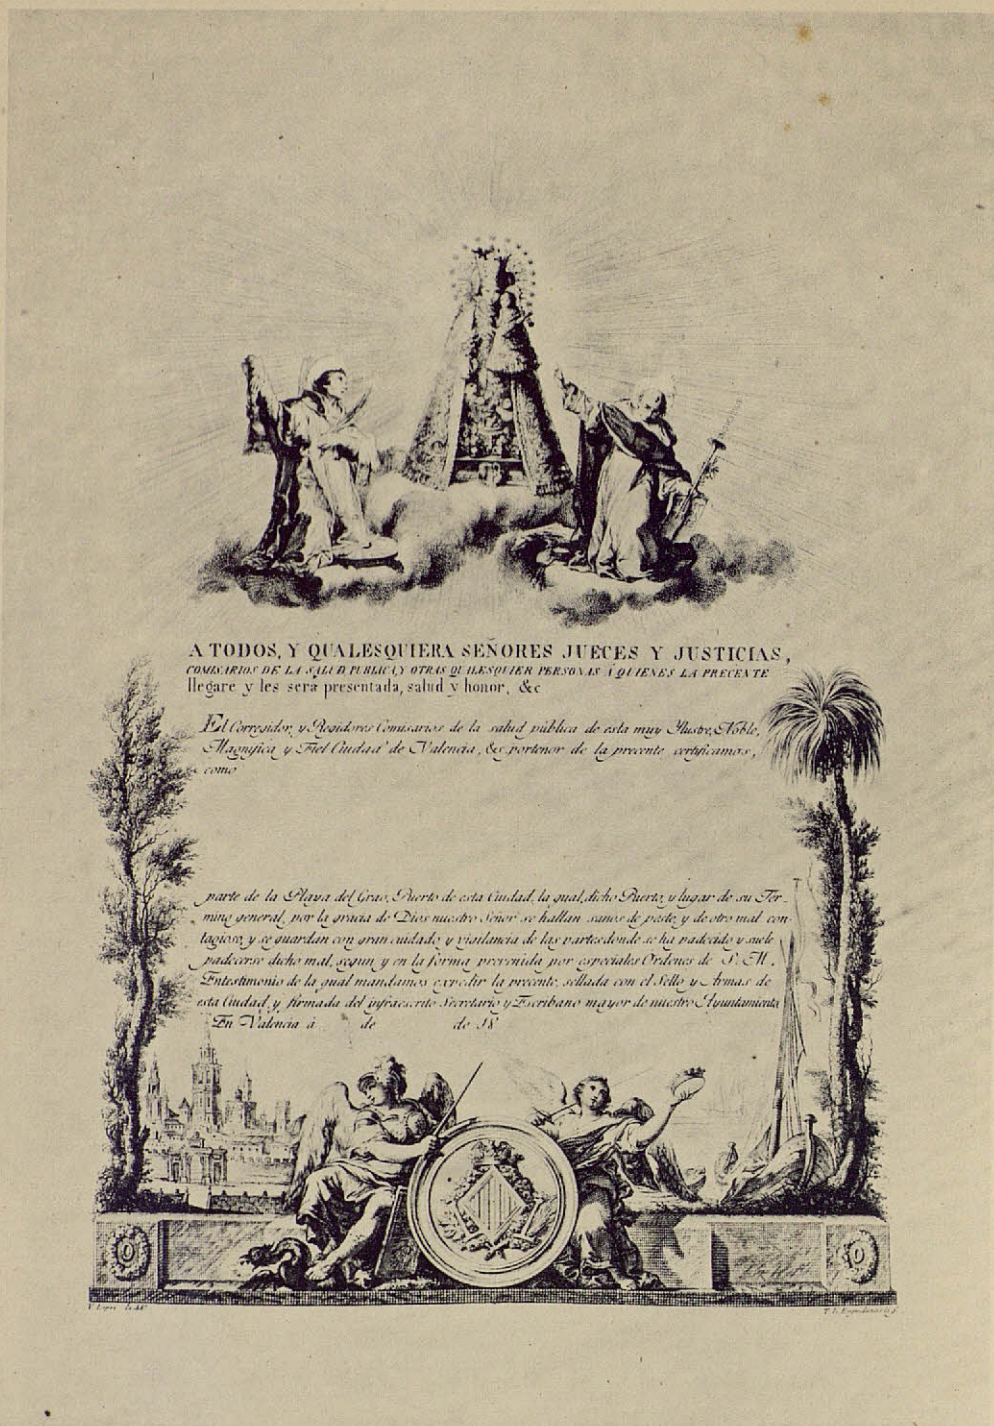 A TODOS, Y QUALESQUIERA SEÑORES JUECES Y JUSTICIAS,
COMISARIOS DE LA SALUD PUBLICA, Y OTRAS QUALESQUIER PERSONAS Á QUIENES LA PRECENTE
llegare y les será presentada, salud y honor, &c
El Corregidor, y Regidores Comisarios de la salud pública de esta muy Ilustre, Noble,
Magnifica y Fiel Ciudad de Valencia, &c, portenor de la precente certificamos,
como
parte de la Playa del Grao, Puerto de esta Ciudad, la qual, dicho Puerto, y lugar de su Ter-
mino general, por la gracia de Dios nuestro Señor se hallan sanos de peste, y de otro mal con-
tagioso, y se guardan con gran cuidado y vigilancia de las partes donde se ha padecido y suele
padecerse dicho mal, segun y en la forma prevenida por especiales Ordenes de S. M.
En testimonio de la qual mandamos expedir la precente, sellada con el Sello y Armas de
esta Ciudad, y firmada del infraescrito Secretario y Escribano mayor de nuestro Ayuntamiento
En Valencia á de de 18
V. Lopez